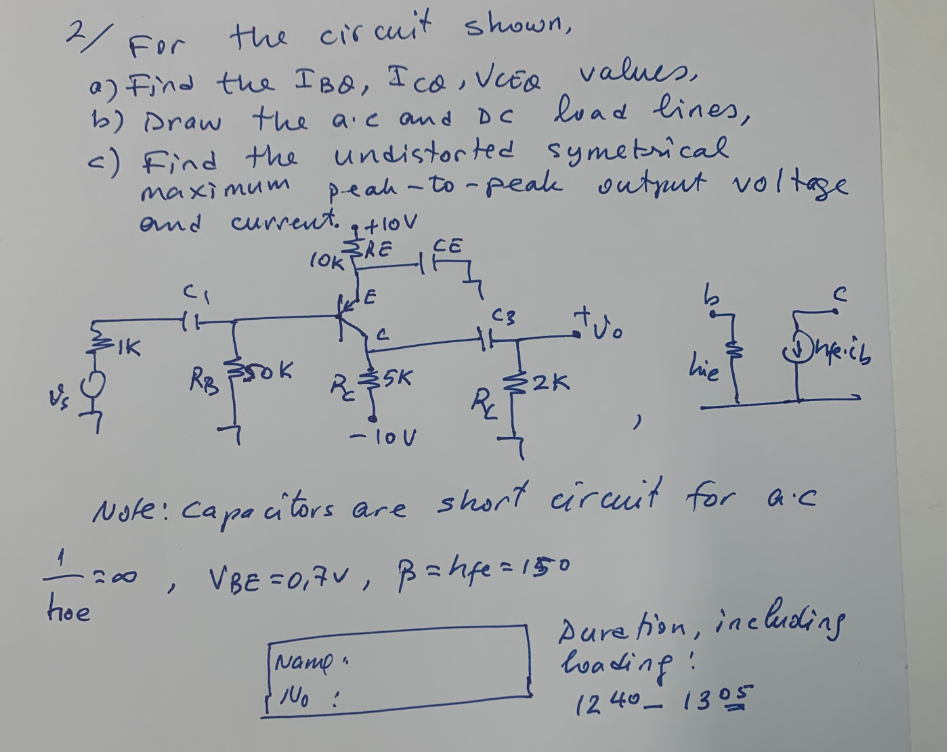 2/ For the circuit shown,
a) Find the IBQ, ICQ, VCEQ values,
b) Draw the a.c and DC load lines,
c) Find the undistorted symetrical
maximum peak-to-peak output voltage
and current.
+10V
10K RE CE
E
C1
C
C3
+
Vo
b
c
1K
RB 50K
RC 5K
RL 2K
hie
hfe.ib
Vs
-10V
,
Note: Capacitors are short circuit for a.c
1/hoe = ∞ , VBE = 0,7V , β = hfe = 150
Duration, including
loading:
12 40 - 13 05
Name:
No :